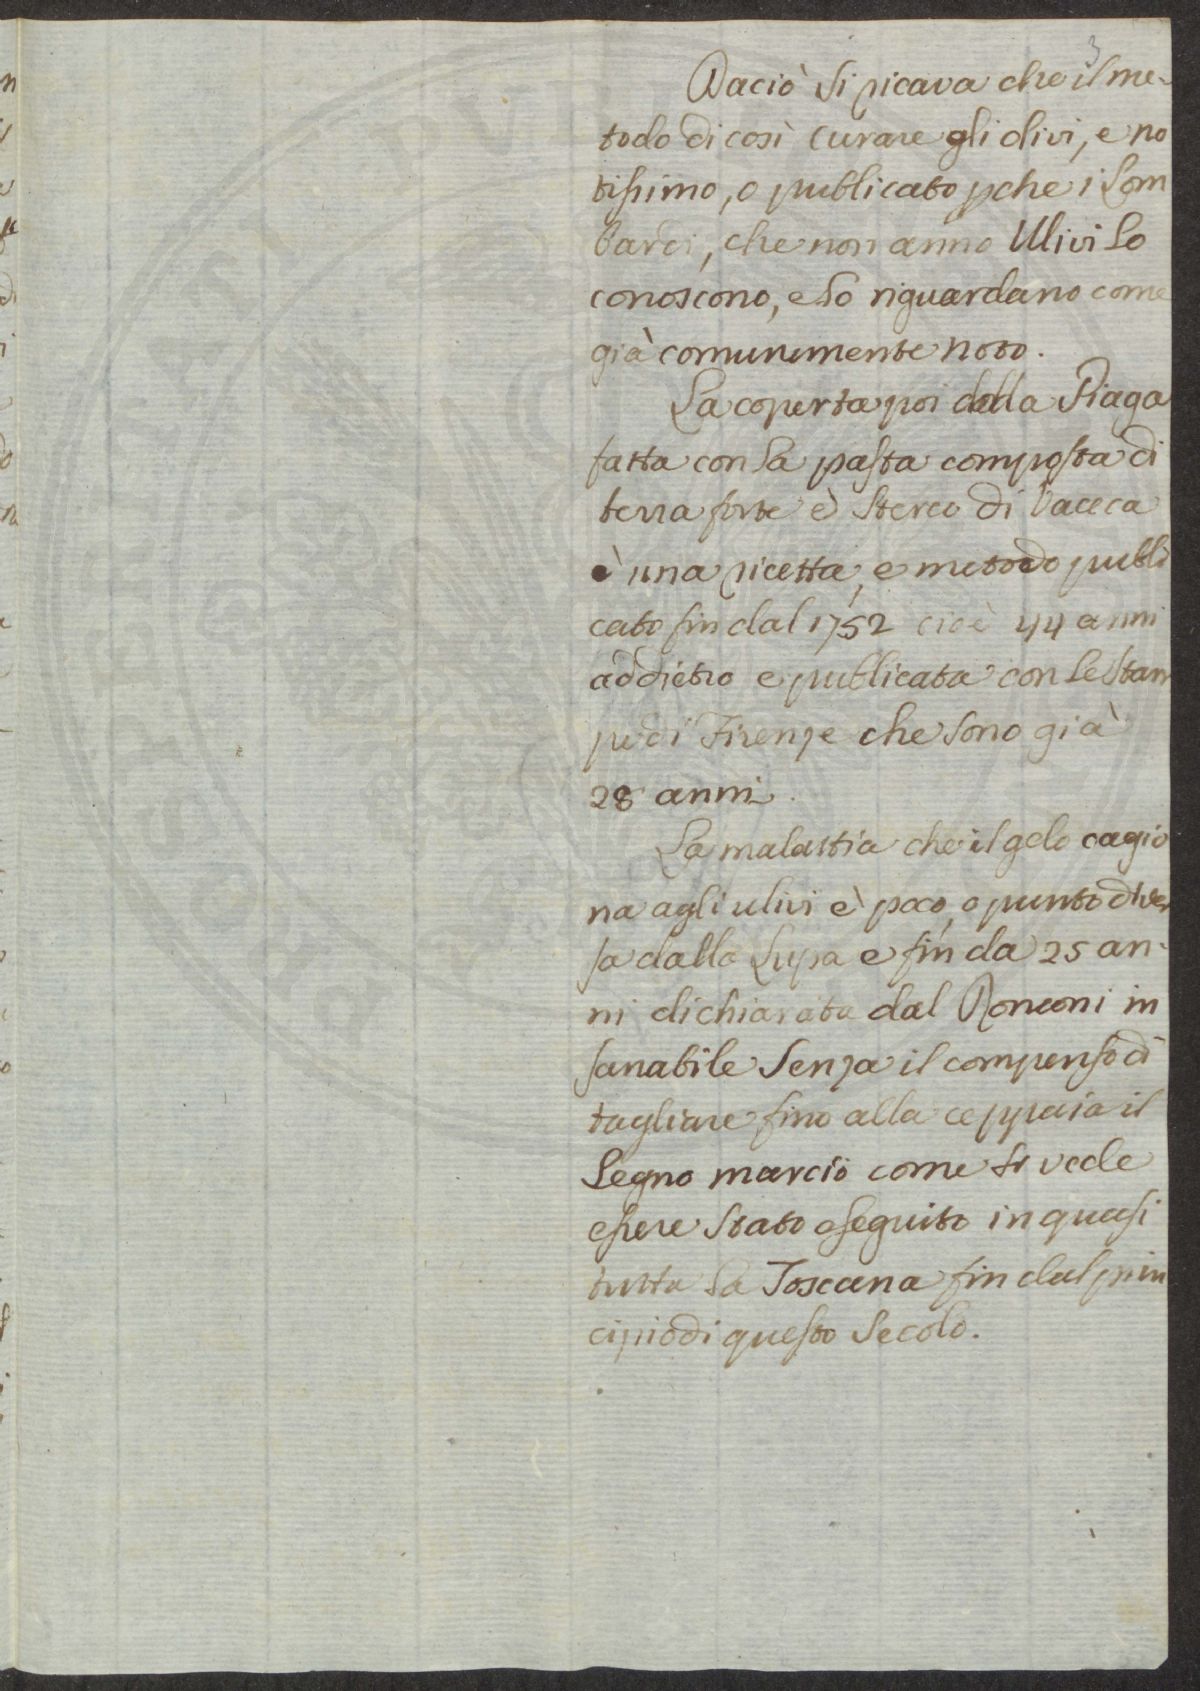 3
Daciò si ricava che il me-
todo di così curare gli olivi, e no
tissimo, o publicato pche i Lom
bardi, che non anno Ulivi lo
conoscono, e lo riguardano come
già comunemente noto.
La coperta poi della Piaga
fatta con la pasta composta di
terra forte è sterco di Vacca
è una ricetta, e metodo publi
cato fin dal 1752 cioè 44 anni
addietro e publicata con le Stam
pe di Firenze che sono già
28 anni.
La malattia che il gelo cagio
na agli ulivi è poco, o punto diver
sa dalla Lupa e fin da 25 an-
ni dichiarata dal Ronconi in
sanabile senza il compenso di
tagliare fino alla ceppaia il
Legno marcio come si vede
essere stato eseguito in quasi
tutta la Toscana fin dal prin
cipio di questo Secolo.